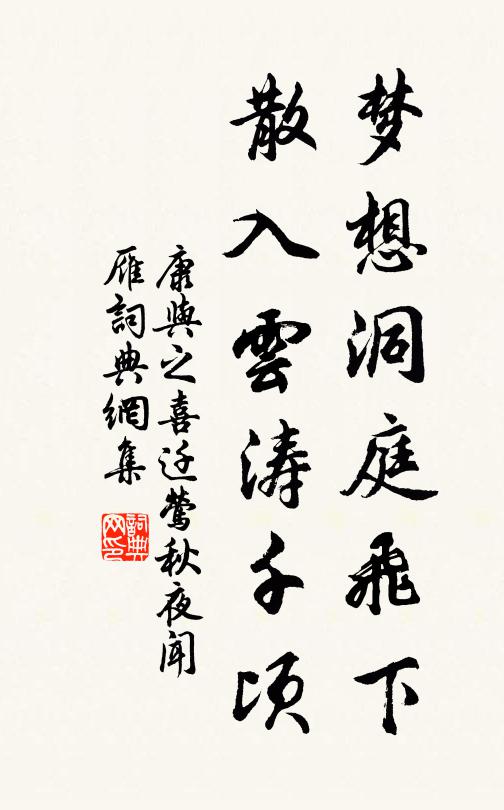 梦想洞庭飛下
散入雲涛千頃
康與之喜迁鶯秋夜聞
雁詞典網集
詞典
网印